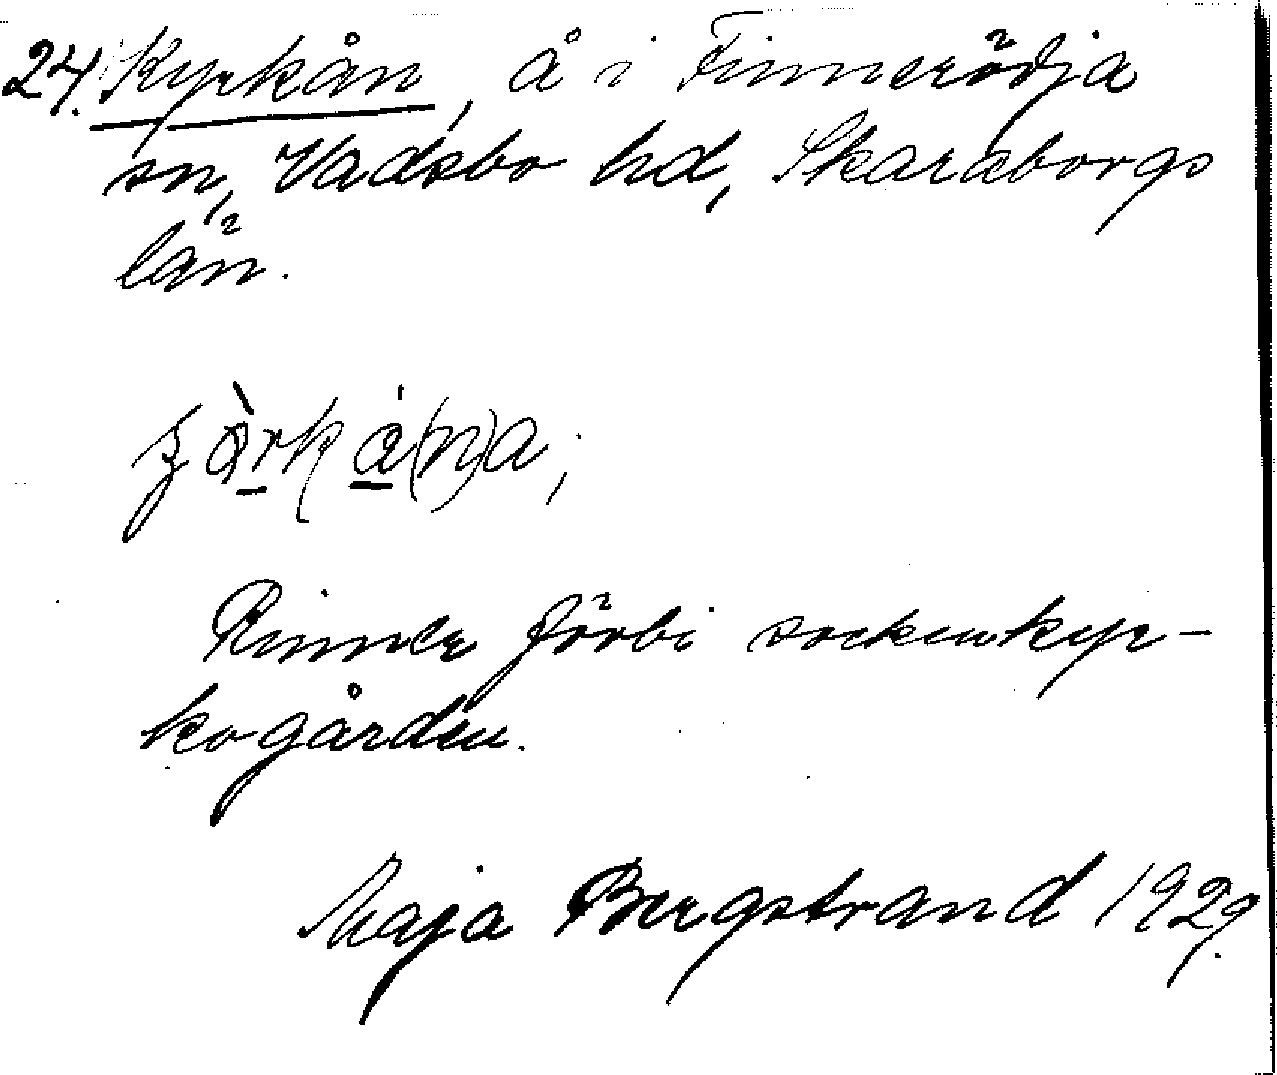 24. Kyrkån, å i Finnerödja
sn, Vadsbo hd, Skaraborgs
län.
Rinner förbi sockenkyr-
kogården.
Maja Bergstrand 1929.